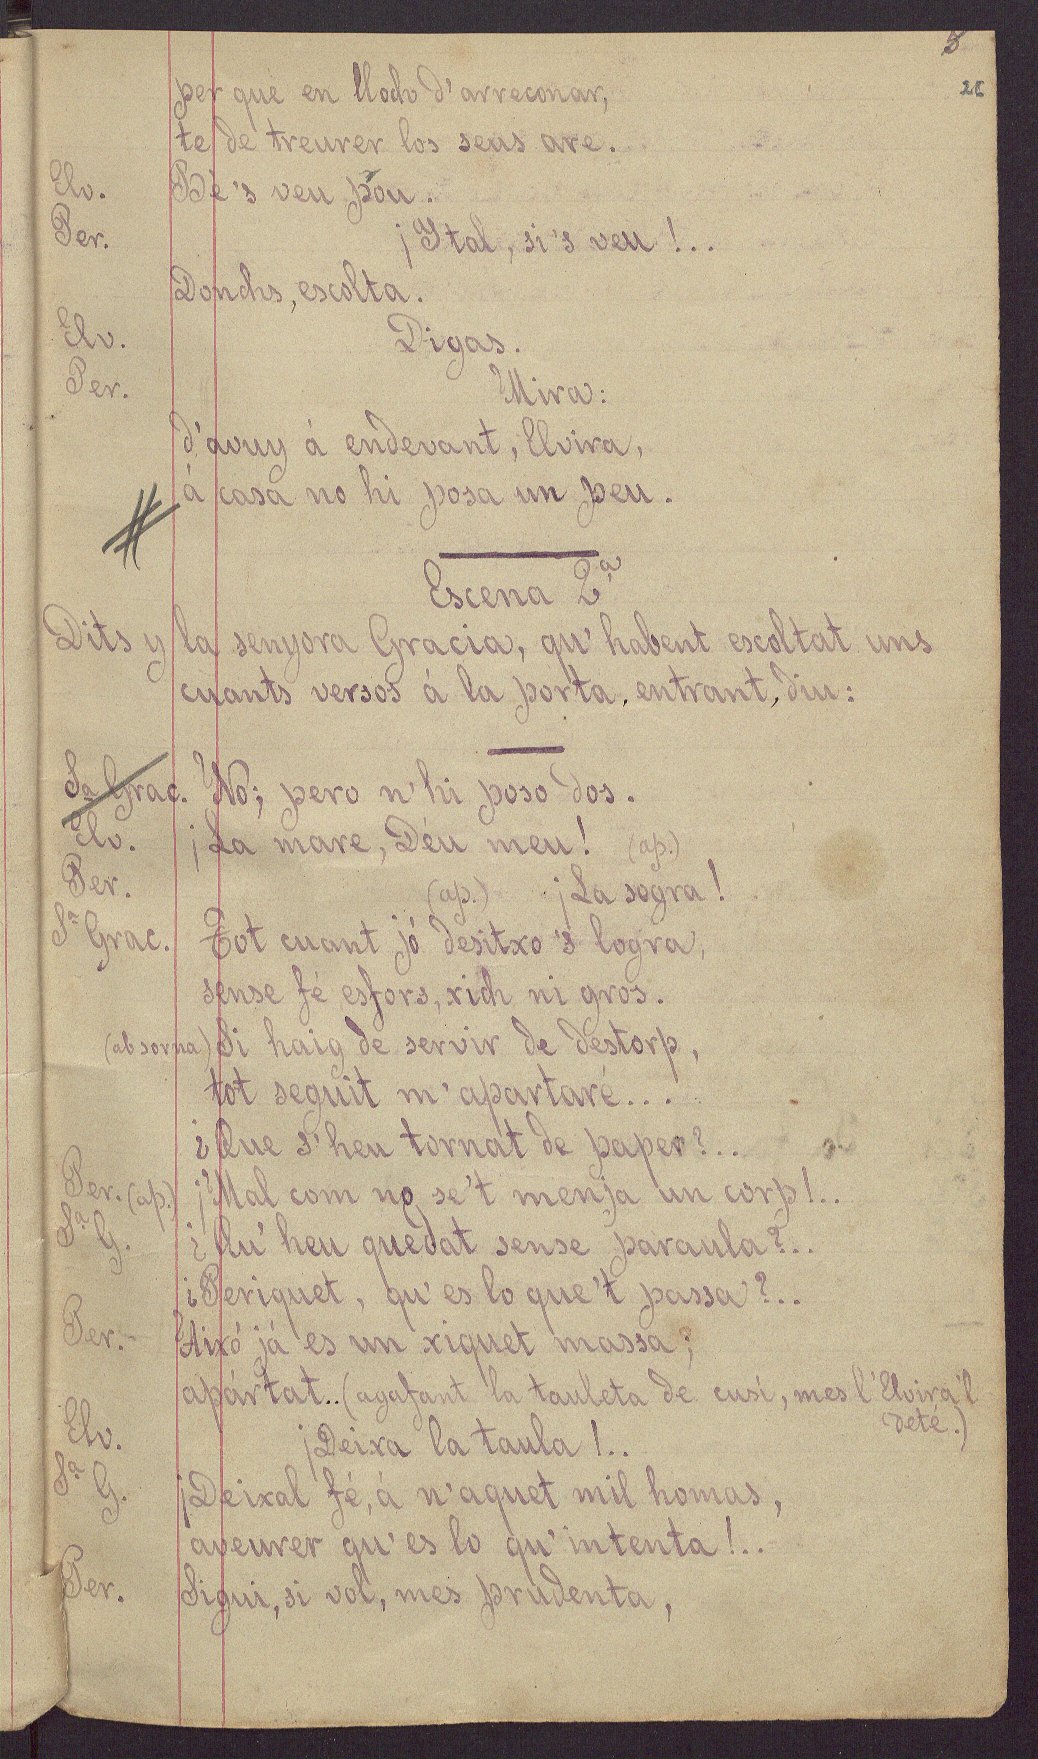 5
25
per que en lloch d'arreconar,
te de treurer los seus are.
Elv. Bé's veu prou.
Per. ¡Y tal, si's veu!..
Donchs, escolta.
Elv. Digas.
Per. Mira:
d'avuy á endevant, Elvira,
á casa no hi posa un peu.
Escena 2ª
Dits y la senyora Gracia, qu'habent escoltat uns
cuants versos á la porta, entrant, diu:
Sª Grac. No; pero n'hi poso dos.
Elv. ¡La mare, Déu meu! (ap.)
Per. (ap.) ¡La sogra!
Sª Grac. Tot cuant jó desitxo's logra,
sense fé esfors, xich ni gros.
(ab sorna) Si haig de servir de destorp,
tot seguit m'apartaré...
¿Que s'heu tornat de paper?..
Per. (ap.) ¡Mal com no se't menja un corp!..
Sª G. ¿Qu'heu quedat sense paraula?..
¿Periquet, qu'es lo que't passa?..
Per. Aixó já es un xiquet massa;
apártat.. (agafant la tauleta de cusí, mes l'Elvira'l
deté.)
Elv. ¡Deixa la taula!..
Sª G. ¡Deixal fé, á n'aquet mil homas,
aveurer qu'es lo qu'intenta!..
Per. Sigui, si vol, mes prudenta,